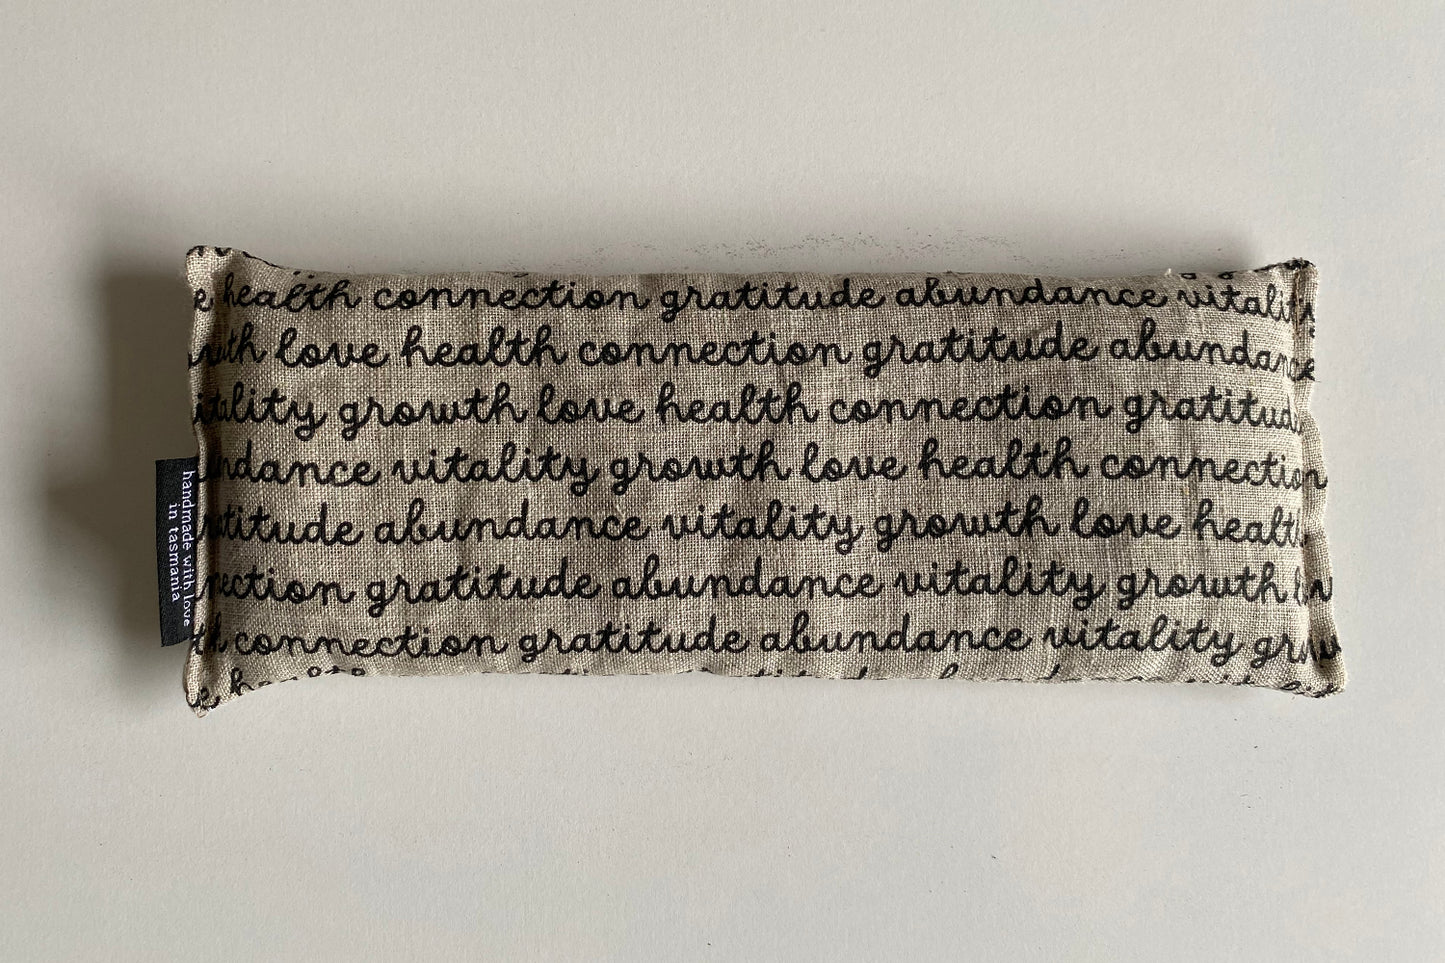 health connection gratitude abundance vitality
love health connection gratitude abundance
vitality growth love health connection gratitude
abundance vitality growth love health connection
gratitude abundance vitality growth love health
connection gratitude abundance vitality growth
connection gratitude abundance vitality
handmade with love
in tasmania